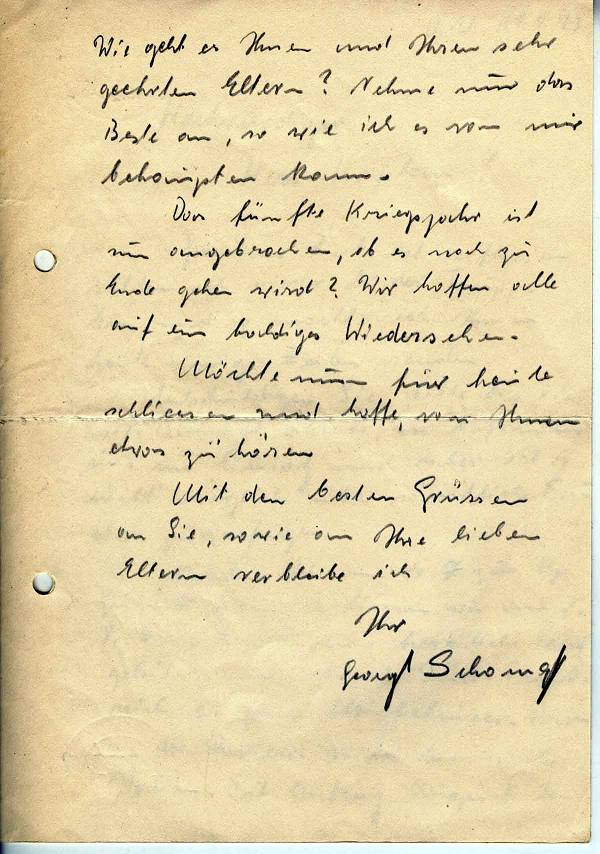 Wie geht es Ihnen und Ihren sehr
geehrten Eltern? Nehme nur das
Beste an, so wie ich es von mir
behaupten kann.
Das fünfte Kriegsjahr ist
nun angebrochen, ob es noch zu
Ende gehen wird? Wir hoffen alle
auf ein baldiges Wiedersehen.
Möchte nun für heute
schliessen und hoffe, von Ihnen
etwas zu hören
Mit den besten Grüssen
an Sie, sowie an Ihre lieben
Eltern verbleibe ich
Ihr
Georg